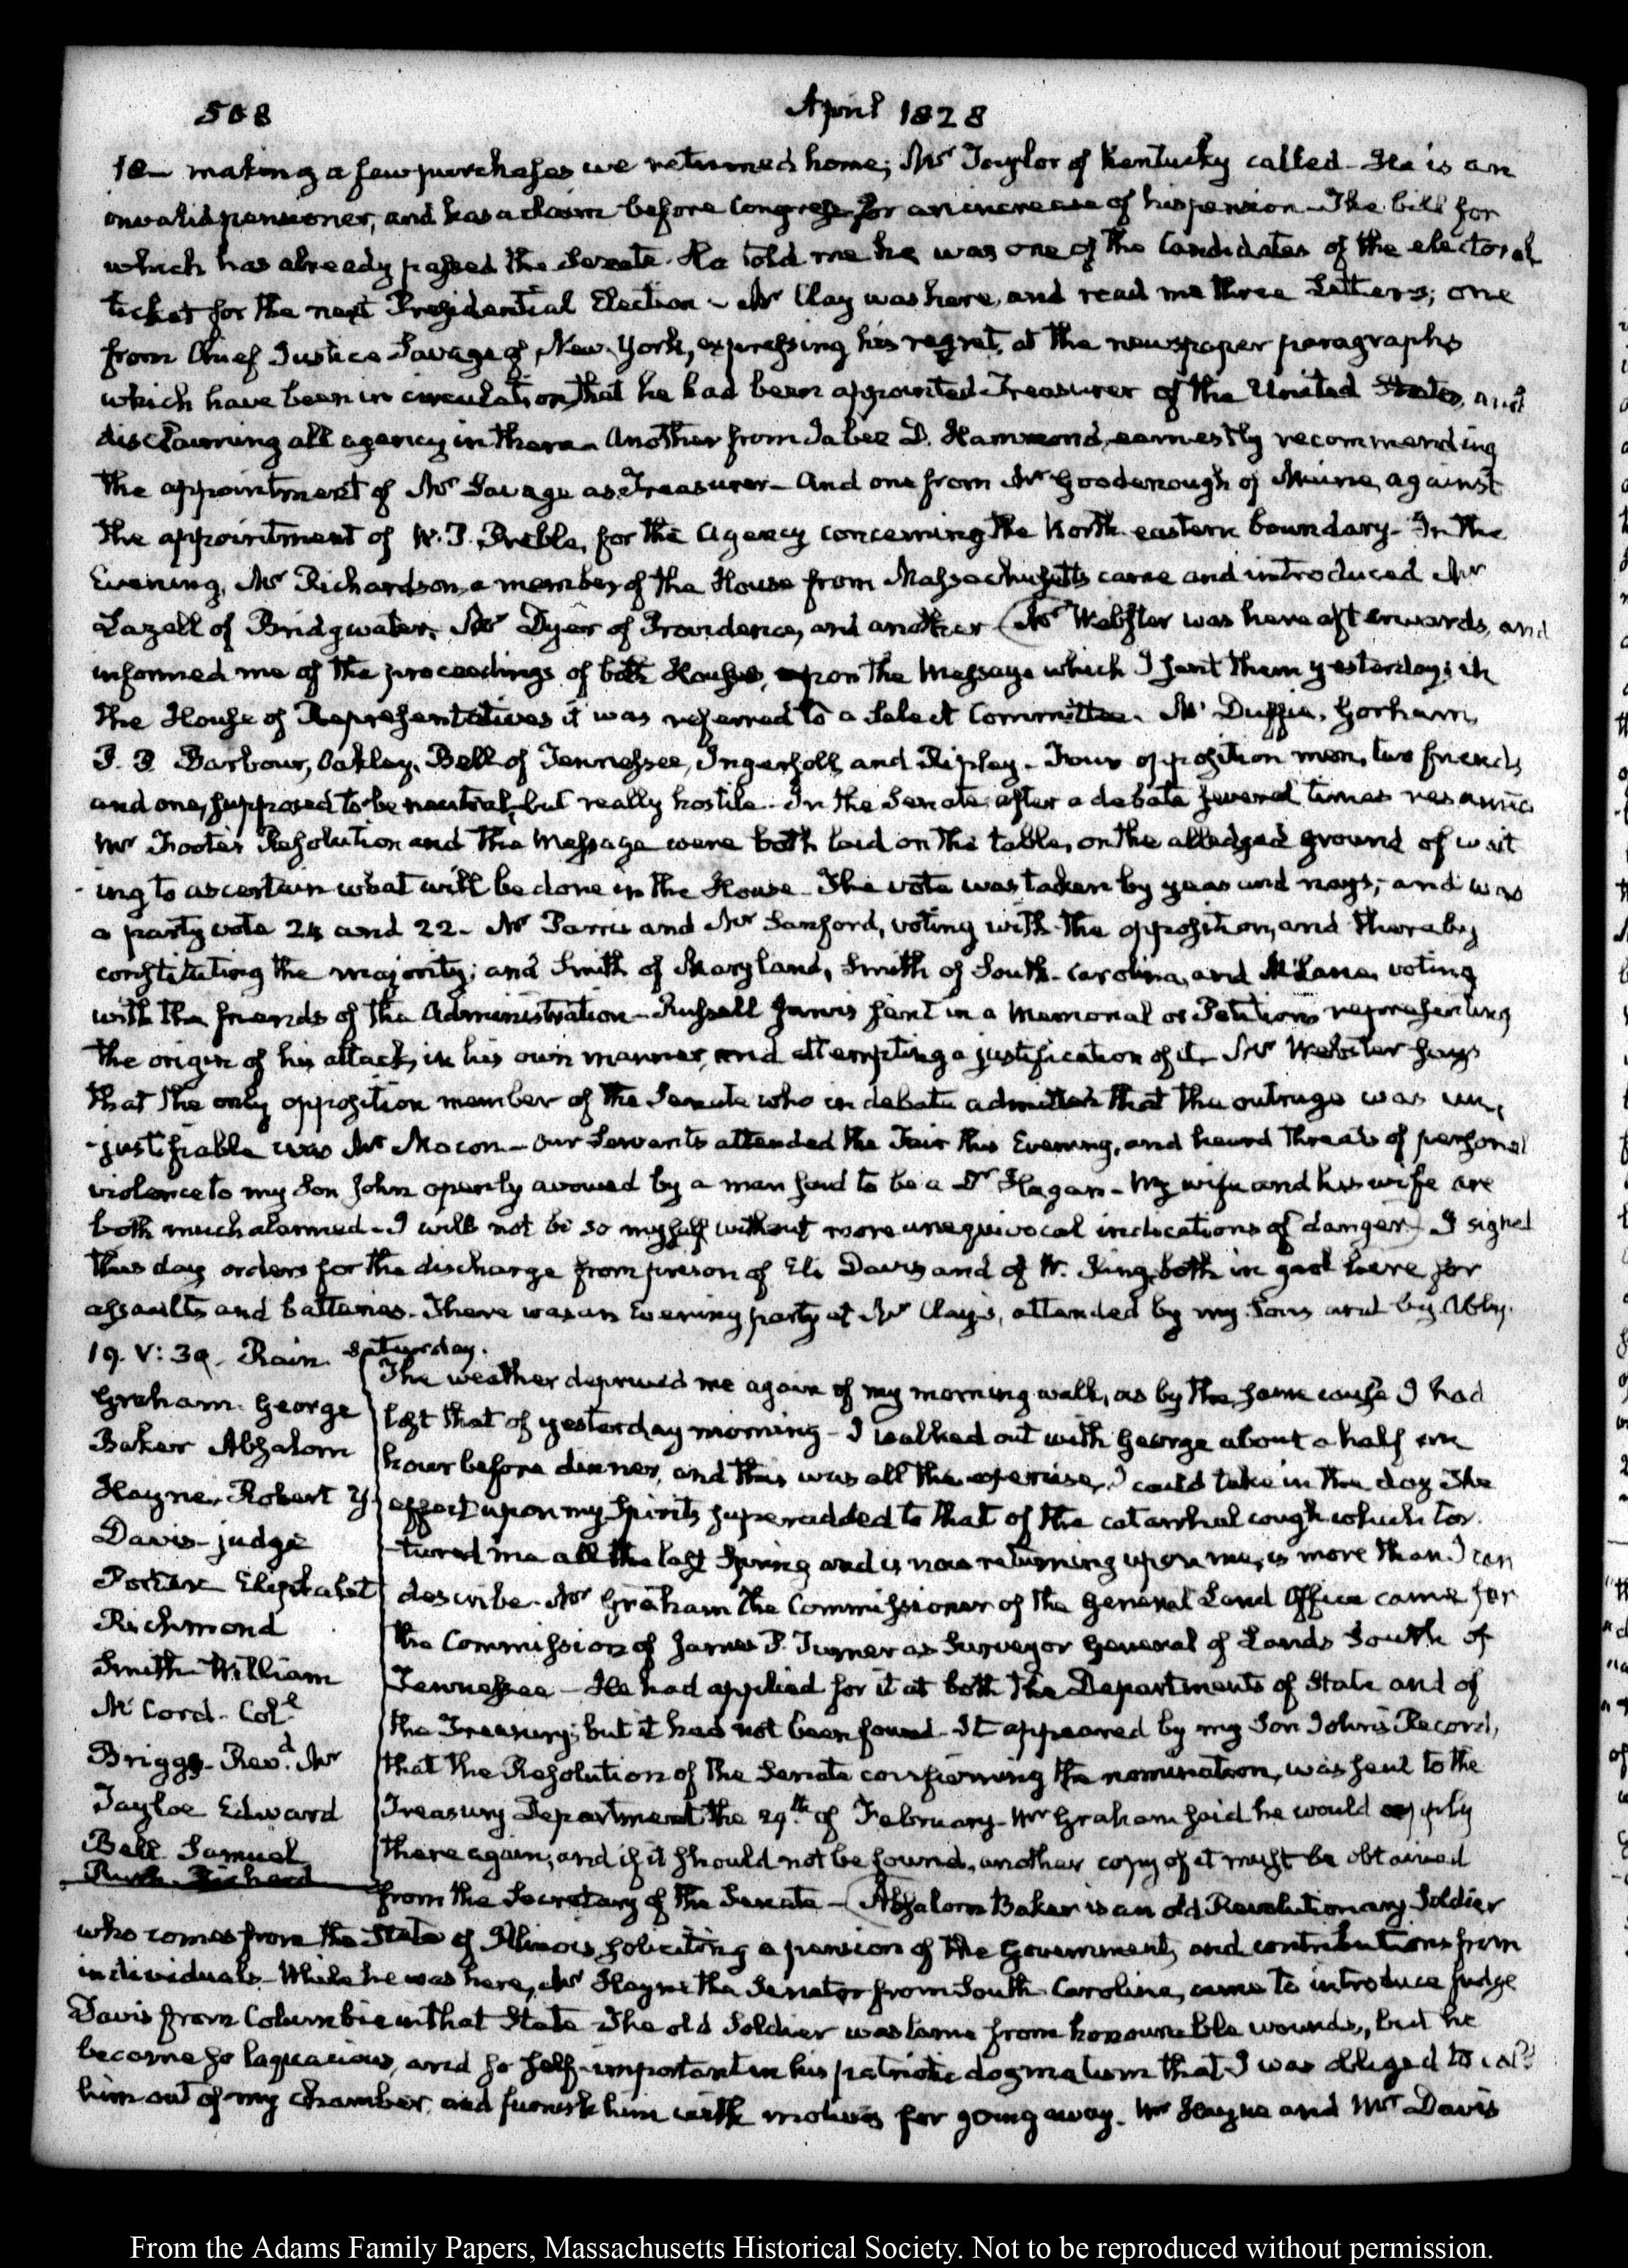 508
April 1828
18 making a few purchases we returned home; Mr Taylor of Kentucky called. He is an
invalid pensioner, and has a claim before Congress for an increase of his pension. The bill for
which has already passed the Senate. He told me he was one of the Candidates of the electoral
ticket for the next Presidential Election. Mr Clay was here, and read me three Letters; one
from Chief Justice Savage of New-York, expressing his regret, at the newspaper paragraphs
which have been in circulation, that he had been appointed Treasurer of the United States, and
disclaiming all agency in them. Another from Jabez D. Hammond, earnestly recommending
the appointment of Mr Savage as Treasurer. And one from Mr Goodenough of Maine, against
the appointment of W. P. Preble, for the Agency concerning the North-eastern boundary. In the
Evening, Mr Richardson a member of the House from Massachusetts came and introduced Mr
Lazell of Bridgwater, Mr Dyer of Providence, and another (Mr Webster was here afterwards, and
informed me of the proceedings of both Houses, upon the Message which I sent them yesterday; in
the House of Representatives it was referred to a select Committee. Mc Duffie, Gorham,
P. P. Barbour, Oakley, Bell of Tennessee, Ingersoll, and Ripley. Four opposition men, two friends
and one, supposed to be neutral, but really hostile. In the Senate, after a debate several times resumed
Mr Foote's Resolution and the Message were both laid on the table, on the alledged ground of wait
-ing to ascertain what will be done in the House. The vote was taken by yeas and nays; and was
a party vote 24 and 22. Mr Parris and Mr Sanford, voting with the opposition, and thereby
constituting the majority; and Smith of Maryland, Smith of South-Carolina, and McLane, voting
with the friends of the Administration. Russell Jarvis sent in a Memorial or Petition representing
the origin of his attack, in his own manner, and attempting a justification of it. Mr Webster says
that the only opposition member of the Senate who in debate admitted that the outrage was un,
-justifiable was Mr Macon. Our Servants attended the Fair this Evening, and heard threats of personal
violence to my Son John openly avowed by a man said to be a Dr Hagan. My wife and his wife are
both much alarmed. I will not be so myself without more unequivocal indications of danger. I signed
this day orders for the discharge from prison of Eli Davis and of W. King, both in gaol here for
assaults and batteries. There was an Evening party at Mr Clay's, attended by my Sons and by Abby.
19. V:30. Rain. Saturday.
Graham. George
Baker Absalom
Hayne. Robert Y.
Davis judge
Potter Eliphalet
Richmond
Smith William
McCord. Coll
Briggs. Revd. Mr
Tayloe Edward
Bell Samuel
Rush Richard
The weather deprived me again of my morning walk, as by the same cause I had
lost that of yesterday morning. I walked out with George about a half an
hour before dinner, and this was all the exercise, I could take in the day. The
effect upon my Spirits superadded to that of the catarrhal cough which tor
-tured me all the last Spring and is now returning upon me, is more than I can
describe. Mr Graham the Commissioner of the General Land Office came for
the Commission of James P. Turner as Surveyor General of Lands South of
Tennessee. He had applied for it at both the Departments of State and of
the Treasury; but it had not been found. It appeared by my Son John's Record,
that the Resolution of the Senate confirming the nomination, was sent to the
Treasury Department the 29th of February. Mr Graham said he would apply
there again; and if it should not be found, another copy of it must be obtained
from the Secretary of the Senate. (Absalom Baker is an old Revolutionary Soldier
who comes from the State of Illinois soliciting a pension of the Government, and contributions from
individuals. While he was here, Mr Hayne the Senator from South-Carolina, came to introduce Judge
Davis from Columbia in that State. The old Soldier was lame from honourable wounds, but he
became so loquacious, and so self-important in his patriotic dogmatism that I was obliged to call
him out of my chamber, and furnish him with motives for going away. Mr Hayne and Mr Davis
From the Adams Family Papers, Massachusetts Historical Society. Not to be reproduced without permission.